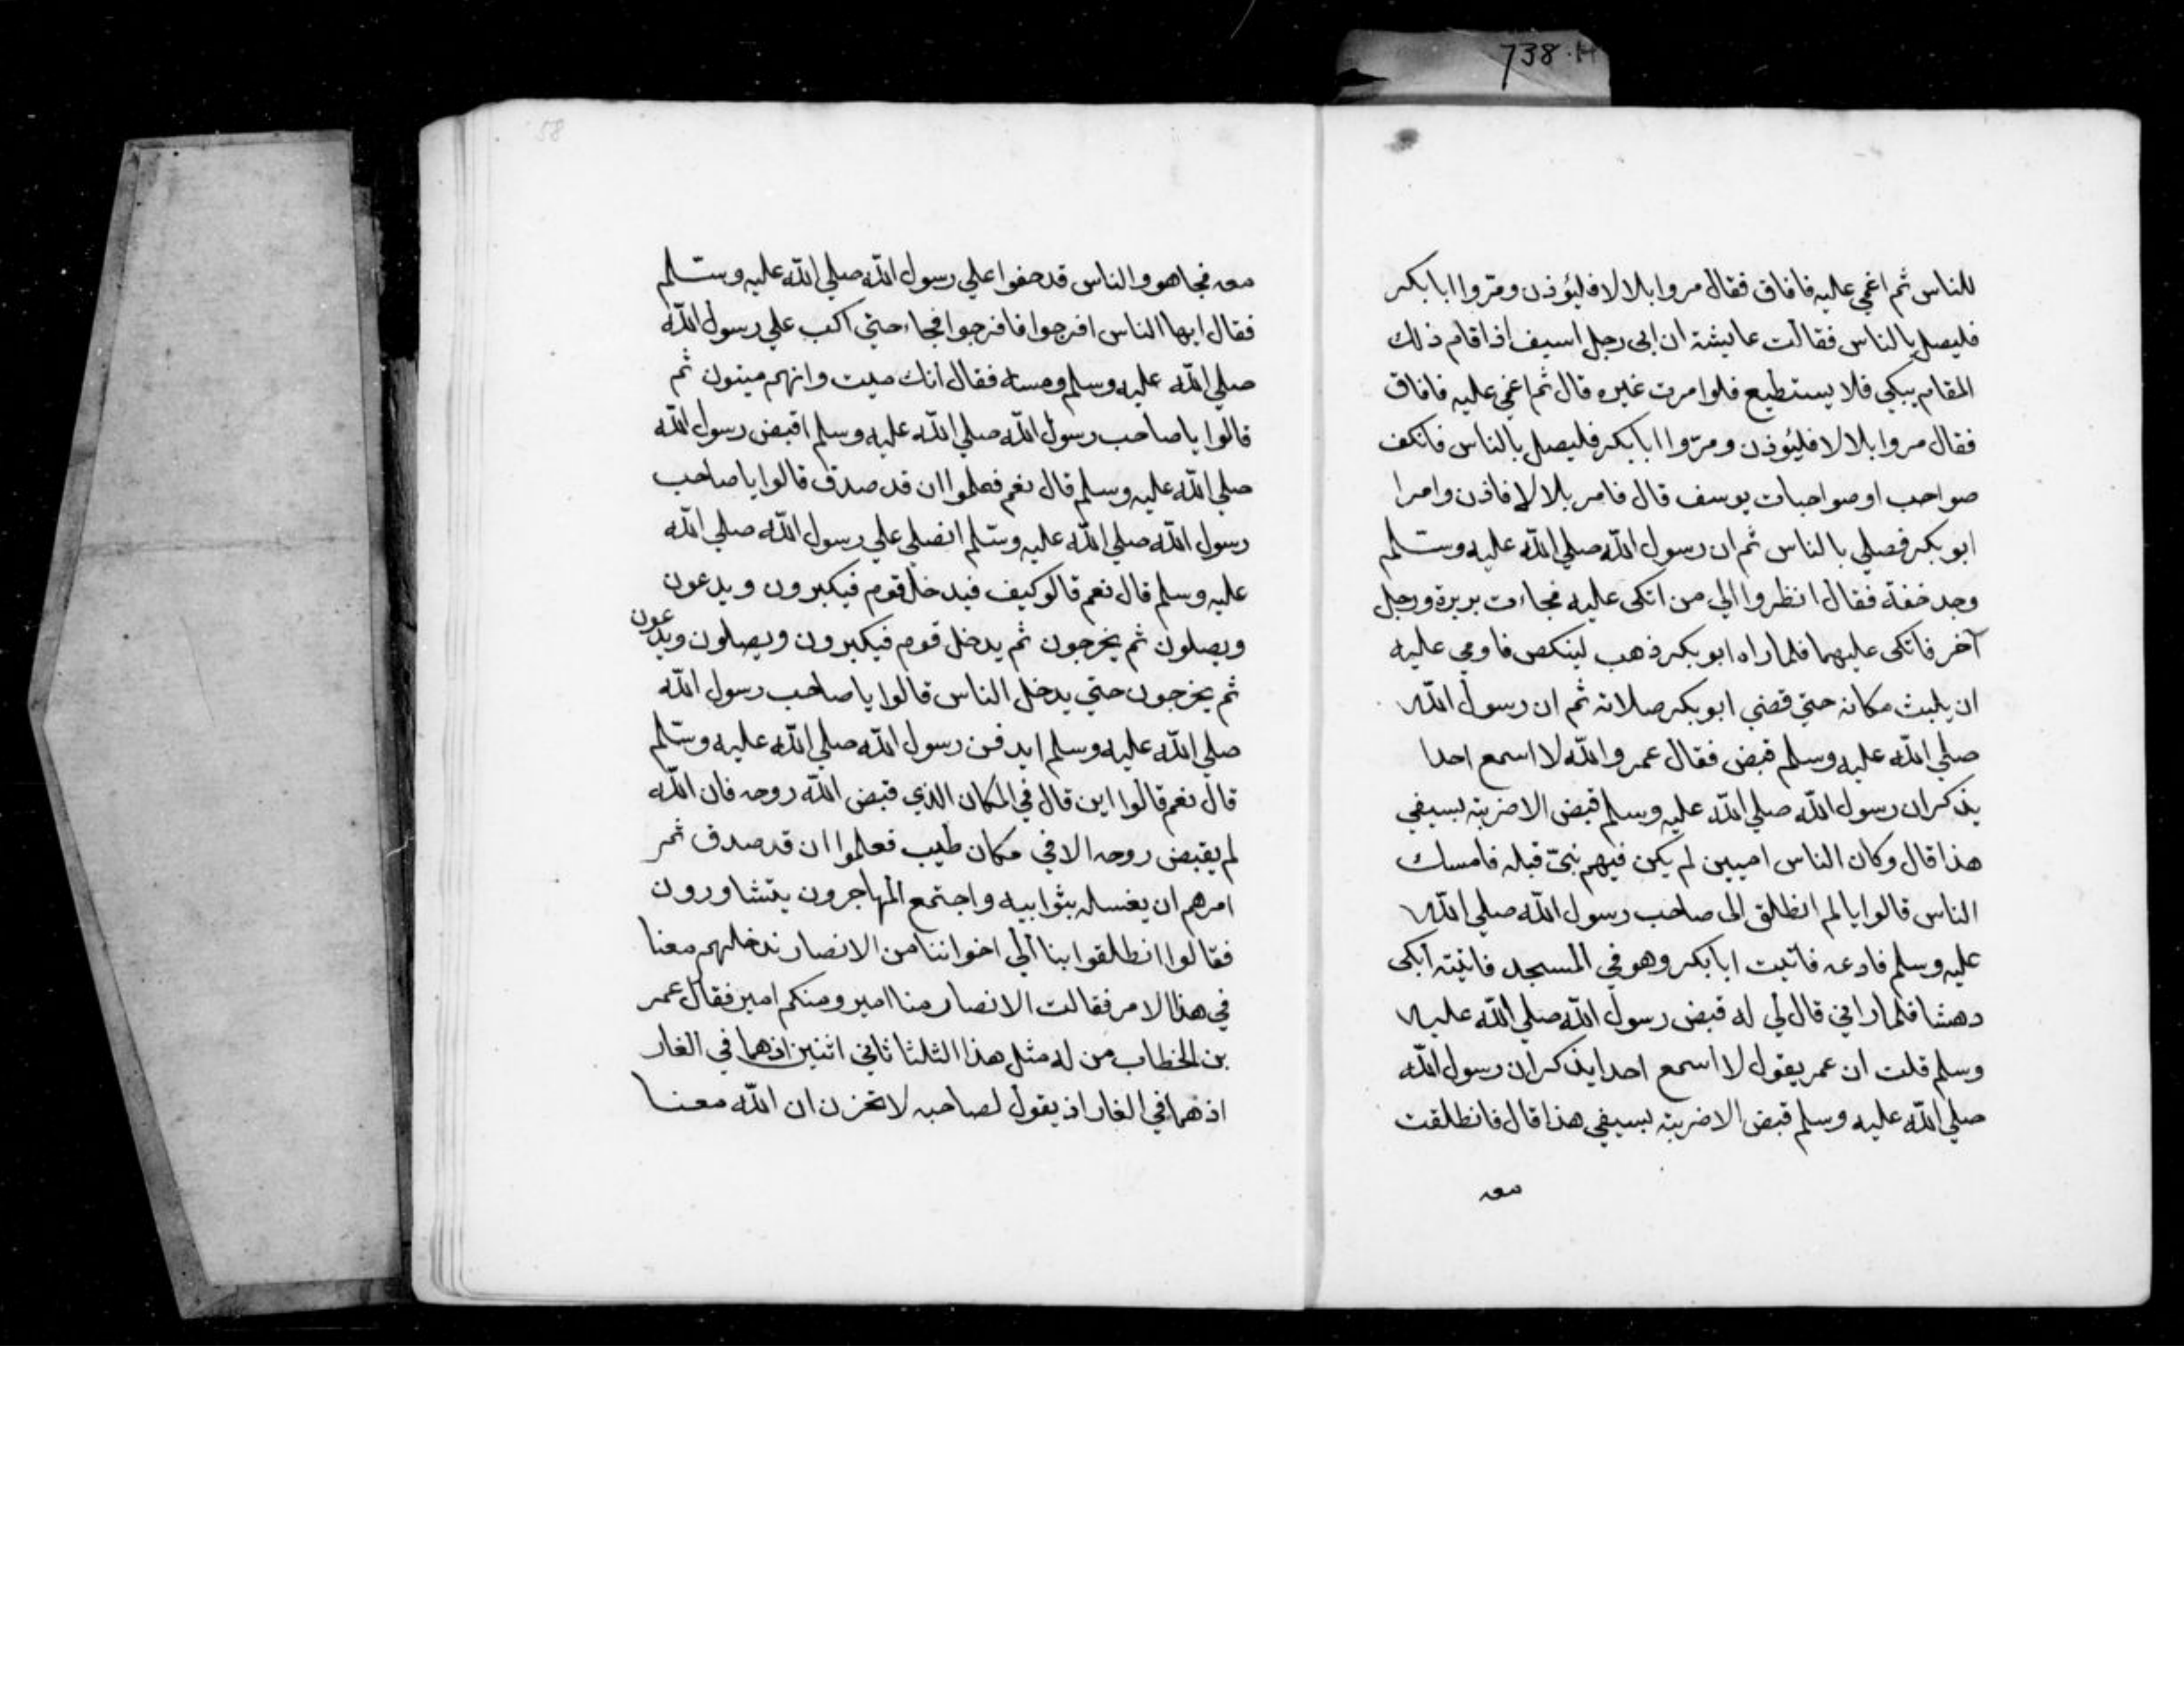 738.H
للناس ثم اغمي عليه فافاق فقال مروا بلالا فليؤذن ومروا ابا بكر
فليصل بالناس فقالت عايشة ان ابى رجل اسيف اذا قام ذلك
المقام يبكي فلا يستطيع فلو امرت غيره قال ثم اغمي عليه فافاق
فقال مروا بلالا فليؤذن ومرّوا ابا بكر فليصل بالناس فانكف
صواحب او صواحبات يوسف قال فامر بلالا فاذن وامرا
ابو بكر فصلي بالناس ثم ان رسول الله صلي الله عليه وسلم
وجد خفة فقال انظروا الي من اتكى عليه فجاءت بريرة ورجل
آخر فاتكى عليهما فلما راه ابو بكر ذهب لينكص فاومي عليه
ان يلبث مكانه حتي قضي ابو بكر صلاته ثم ان رسول الله
صلي الله عليه وسلم قبض فقال عمر والله لا اسمع احدا
يذكر ان رسول الله صلي الله عليه وسلم قبض الا ضربته بسيفي
هذا قال وكان الناس اميين لم يكن فيهم نبيّ قبله فامسك
الناس قالوا يا لم انطلق الى صاحب رسول الله صلي الله
عليه وسلم فادعه فاتيت ابا بكر وهو في المسجد فاتيته ابكى
دهشا فلما راني قال لي له قبض رسول الله صلي الله عليه
وسلم قلت ان عمر يقول لا اسمع احدا يذكر ان رسول الله
صلي الله عليه وسلم قبض الا ضربته بسيفي هذا قال فانطلقت
معه
58
معه فجا هو والناس قد حفوا علي رسول الله صلي الله عليه وسلم
فقال ايها الناس افرجوا فافرجوا فجاء حتي اكب علي رسول الله
صلي الله عليه وسلم ومسه فقال انك ميت وانهم ميتون ثم
قالوا يا صاحب رسول الله صلي الله عليه وسلم اقبض رسول الله
صلي الله عليه وسلم قال نعم فعلموا ان قد صدق قالوا يا صاحب
رسول الله صلي الله عليه وسلم انصلي علي رسول الله صلي الله
عليه وسلم قال نعم قالو كيف فيدخل قوم فيكبرون ويدعون
ويصلون ثم يخرجون ثم يدخل قوم فيكبرون ويصلون ويدعون
ثم يخرجون حتي يدخل الناس قالوا يا صاحب رسول الله
صلي الله عليه وسلم ايدفن رسول الله صلي الله عليه وسلم
قال نعم قالوا اين قال في المكان الذي قبض الله روحه فان الله
لم يقبض روحه الا في مكان طيب فعلموا ان قد صدق ثم
امرهم ان يغسله بنوا ابيه واجتمع المهاجرون يتشاورون
فقالوا انطلقوا بنا الي اخواننا من الانصار ندخلهم معنا
في هذا الامر فقالت الانصار منا امير ومنكم امير فقال عمر
بن الخطاب من له مثل هذا الثلثا ثاني اثنين اذ هما في الغار
اذ هما في الغار اذ يقول لصاحبه لا تحزن ان الله معنا